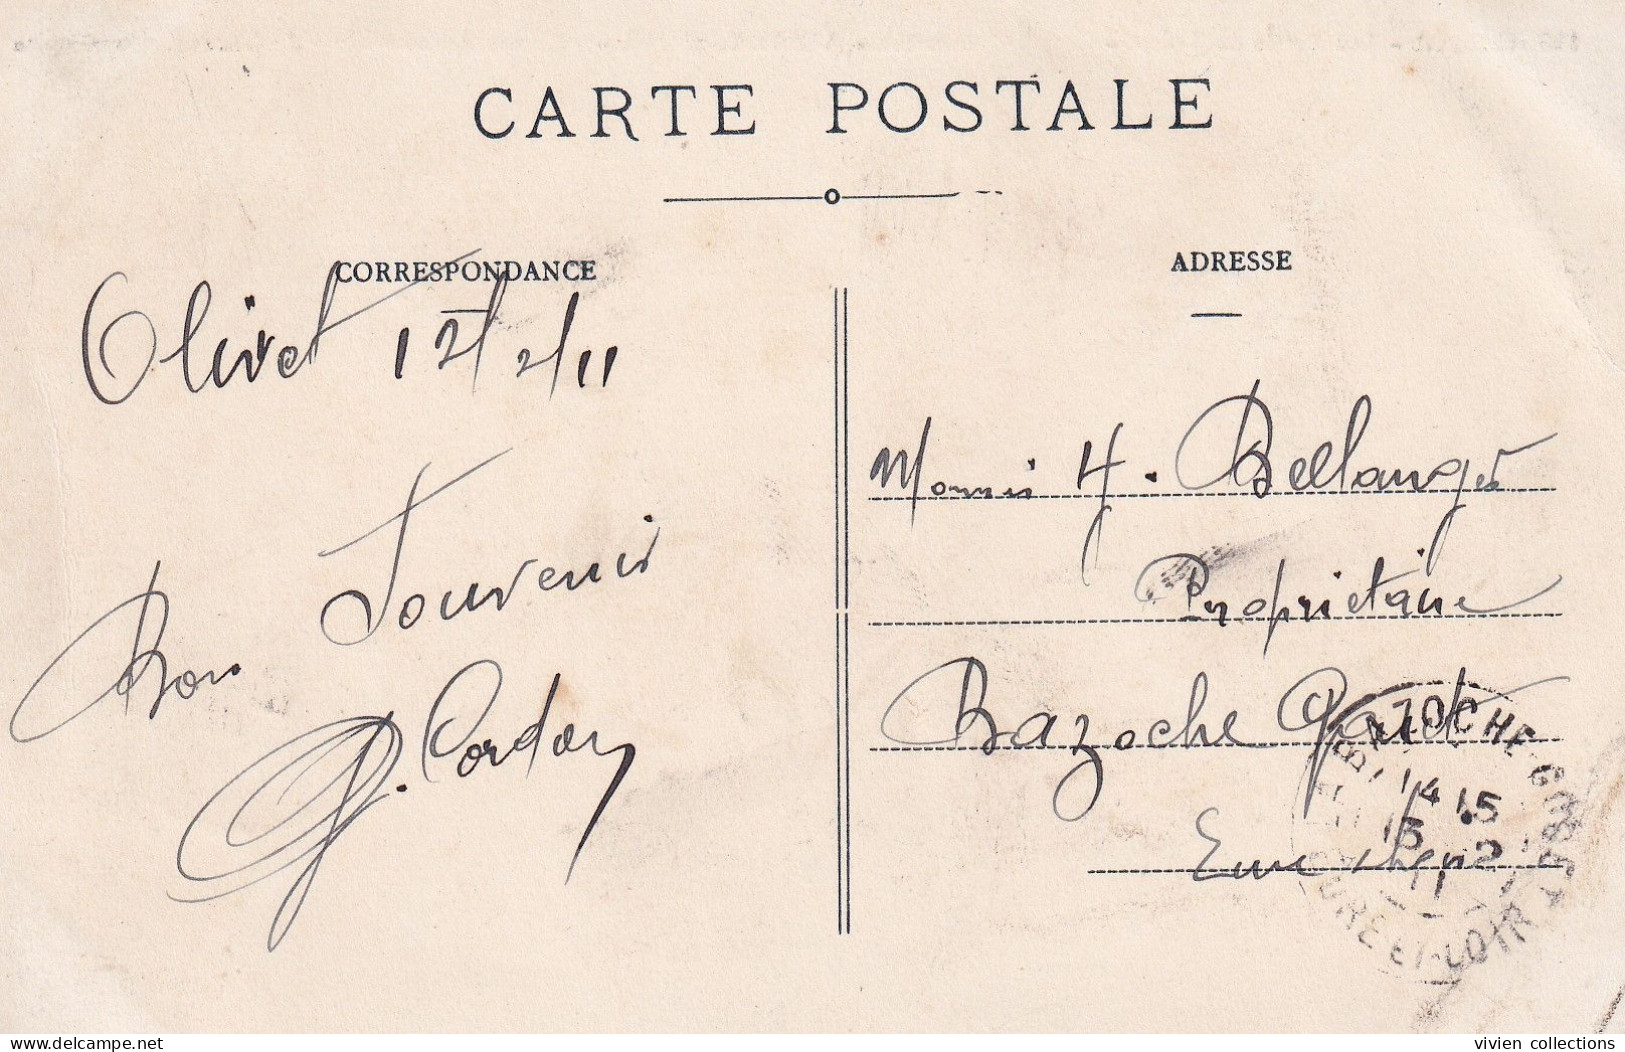 CARTE POSTALE
CORRESPONDANCE
ADRESSE
Olivet 12/2/11
Bon Souvenir
G. Cordon
H. Bellanger
Propriétaire
Bazoche Gouet
Eure
BAZOCHE-GOUET
14 15
13 2
11
EURE ET-LOIR
delcampe.net
vivien collections